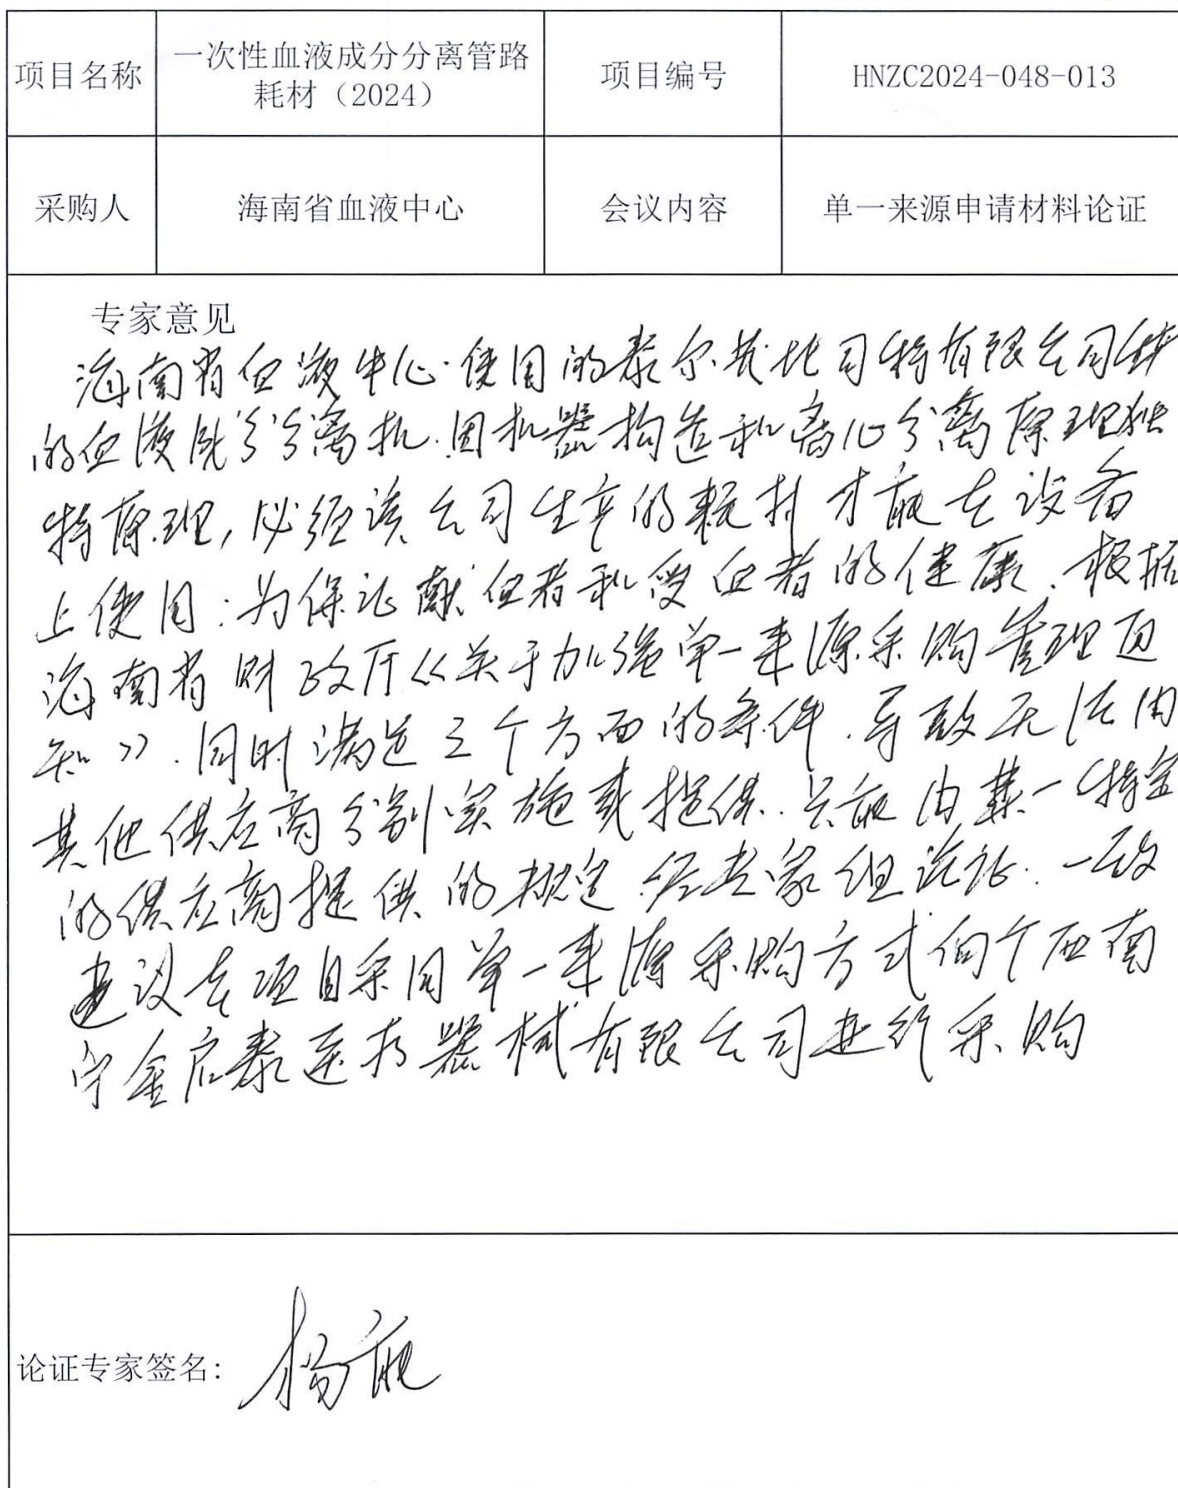 项目名称
一次性血液成分分离管路
耗材（2024）
项目编号
HNZC2024-048-013
采购人
海南省血液中心
会议内容
单一来源申请材料论证
专家意见
海南省血液中心使用的泰尔茂比司特有限公司
的血液成分分离机.因机器构造和离心分离原理独
特原理,必须该公司生产的耗材才能在设备
上使用.为保证献血者和受血者的健康.根据
海南省财政厅《关于加强单一来源采购管理通
知》.同时满足三个方面的条件.导致无法由
其他供应商分别实施或提供.只能由某一特定
的供应商提供的规定.经专家组论证.一致
建议在项目采用单一来源采购方式向广西南
宁金启泰医疗器械有限公司进行采购
论证专家签名: